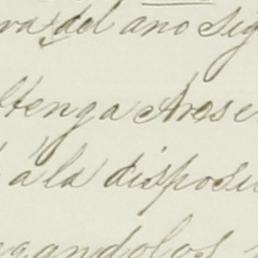 del ano sig
tenga Arse
á la disposi
gandolos